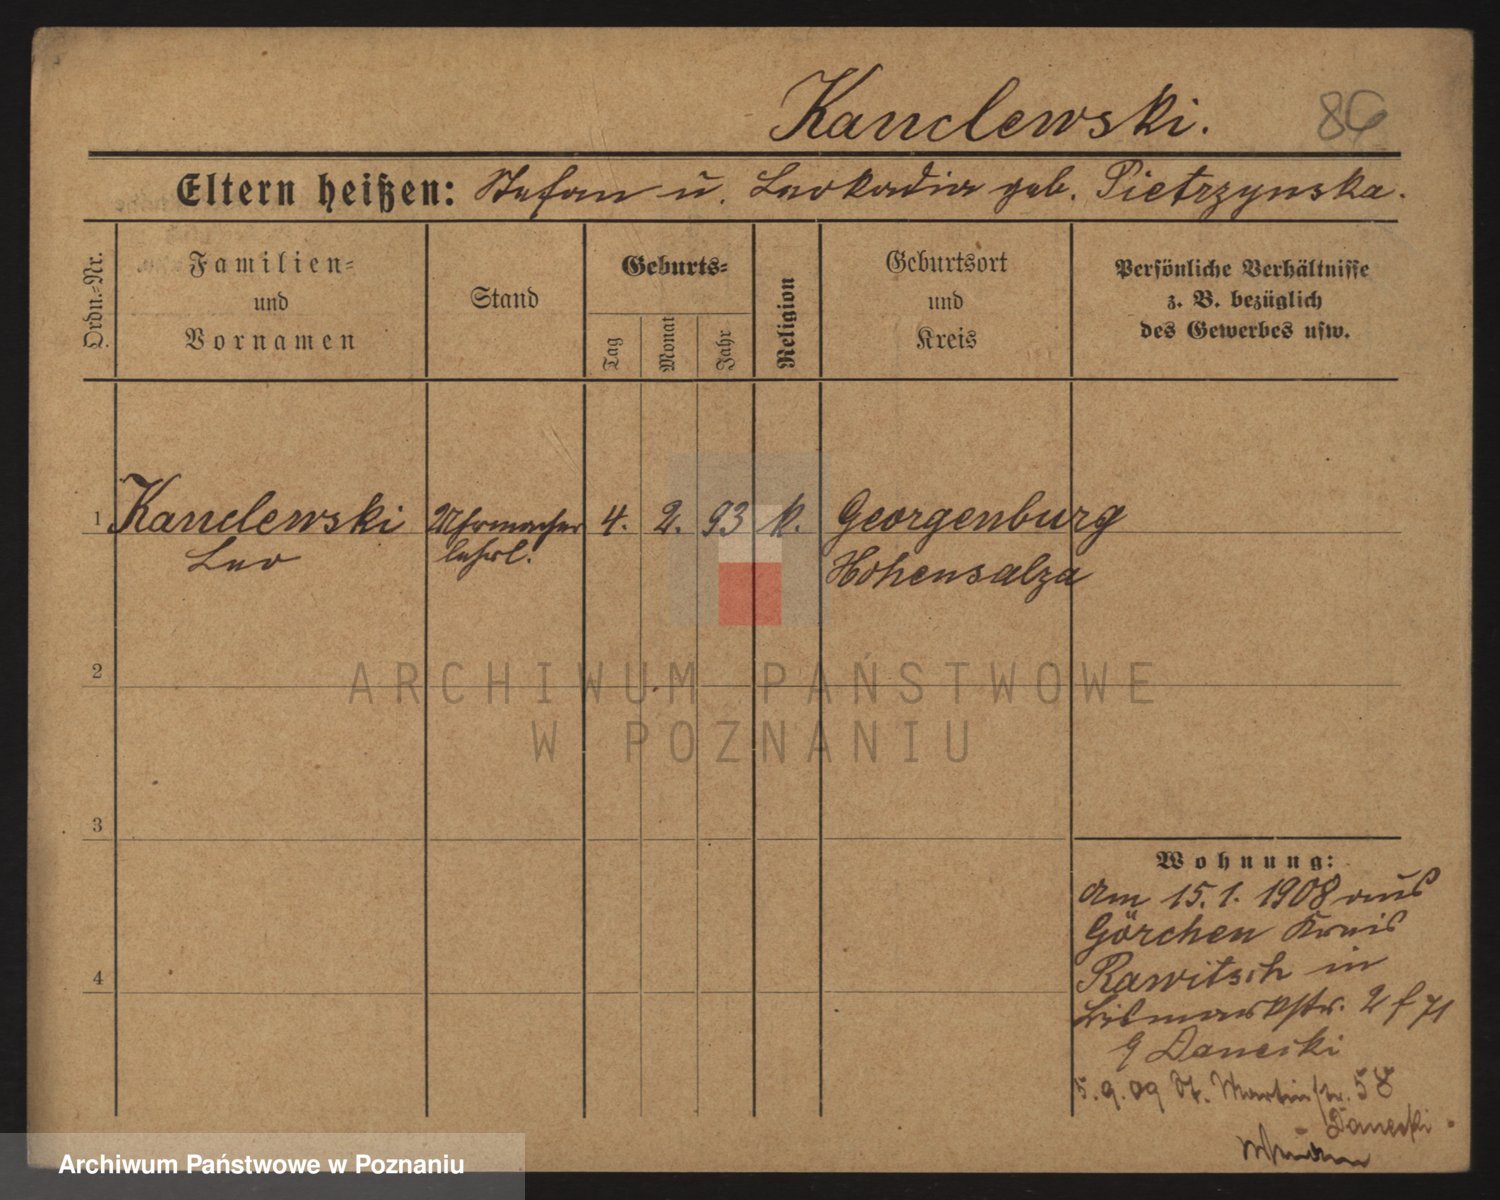 Kanclewski. 86
Eltern heißen: Stefan u. Leokadia geb. Pietrzynska.
Ordn.-Nr.
Familien-
und
Vornamen
Stand
Geburts-
Tag
Monat
Jahr
Religion
Geburtsort
und
Kreis
Persönliche Verhältnisse
z. B. bezüglich
des Gewerbes usw.
1 Kanclewski Uhrmacher 4. 2. 93 k. Georgenburg
Leo lehrl. Hohensalza
2
ARCHIWUM PAŃSTWOWE
W POZNANIU
3
Wohnung:
am 15. 1. 1908 aus
Görchen Kreis
Rawitsch in
Bismarckstr. 2
Danecki
4
5. 9. 09 St. Martinstr. 58
Danecki
Archiwum Państwowe w Poznaniu